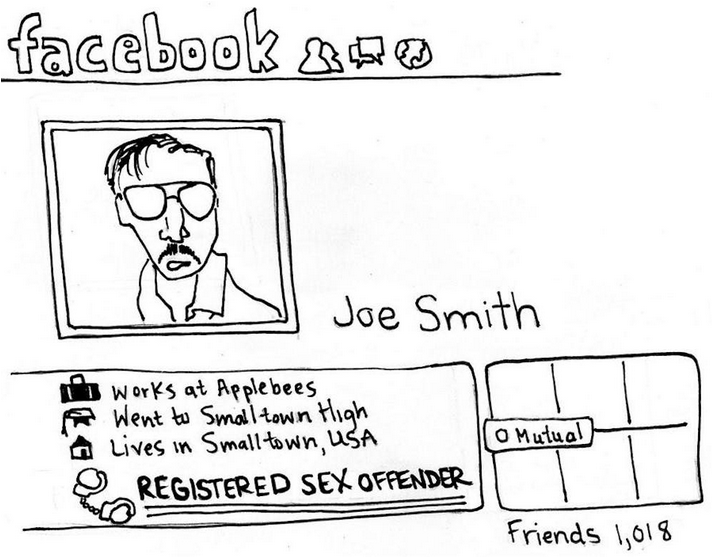 facebook
Joe Smith
Works at Applebees
Went to Smalltown High
Lives in Smalltown, USA
REGISTERED SEX OFFENDER
0 Mutual
Friends 1,018